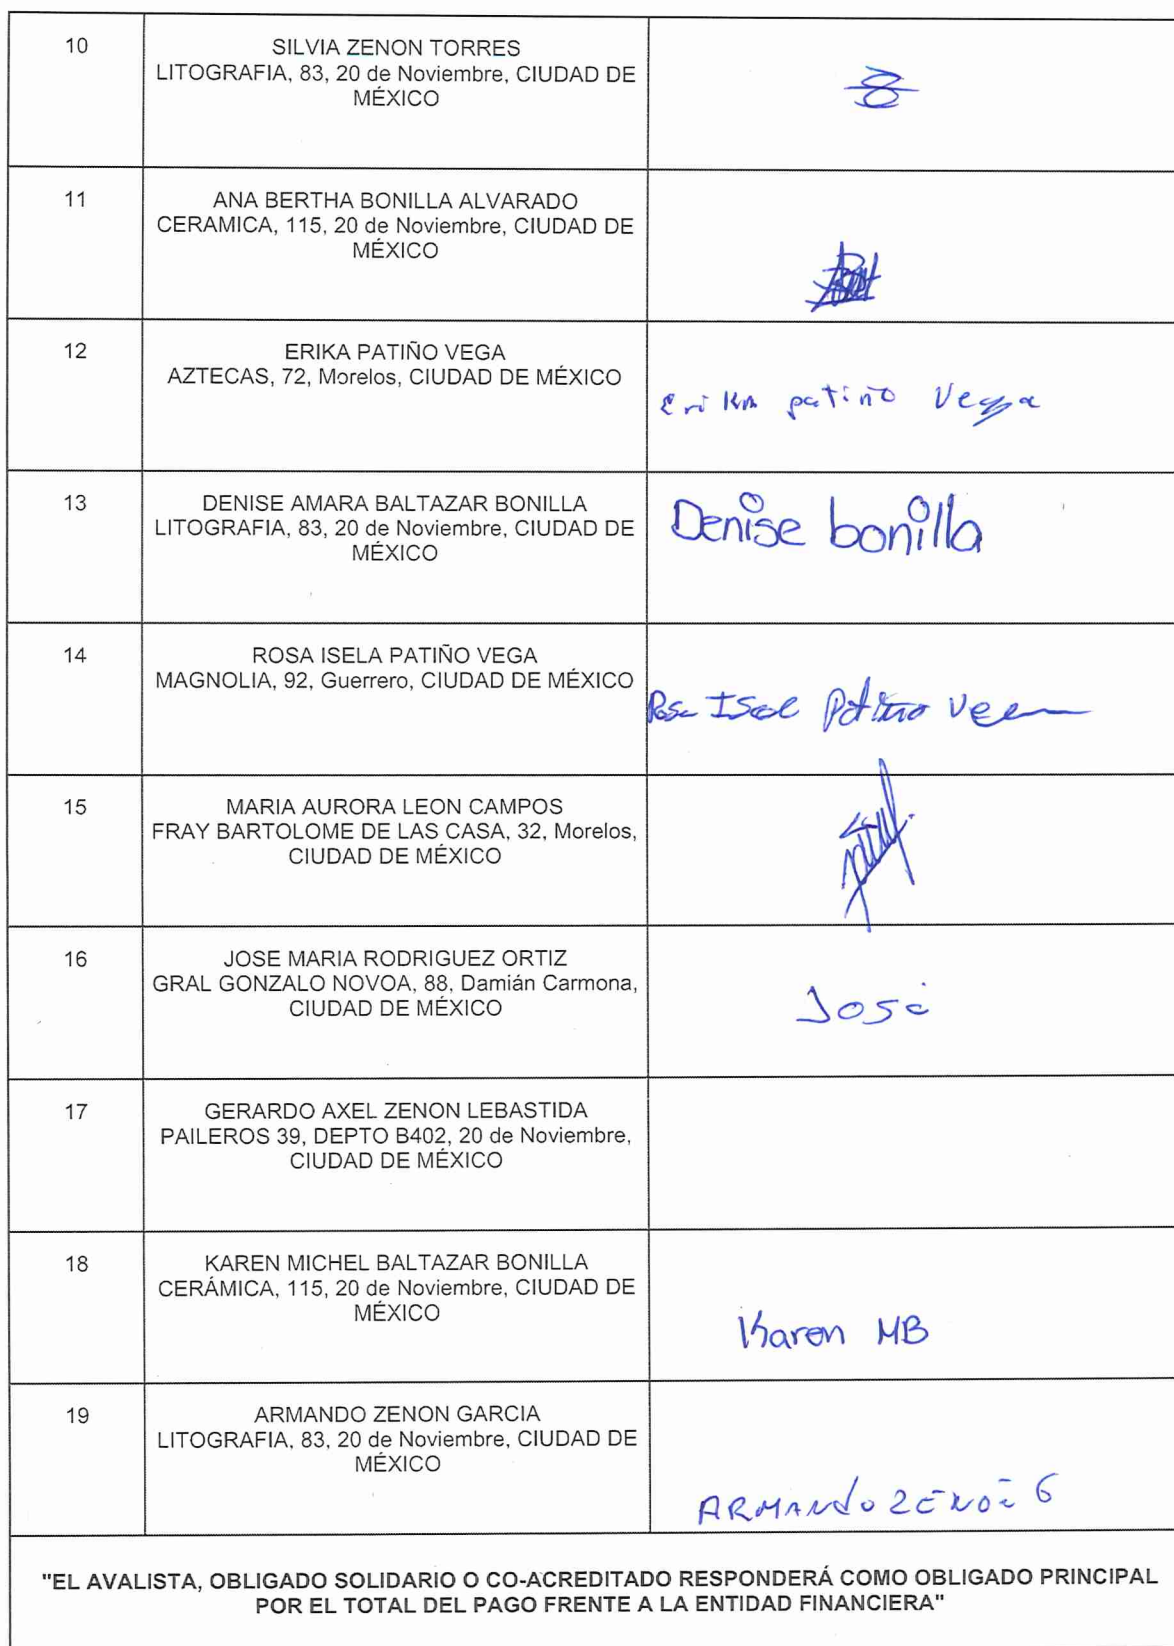 10
SILVIA ZENON TORRES
LITOGRAFIA, 83, 20 de Noviembre, CIUDAD DE
MÉXICO
11
ANA BERTHA BONILLA ALVARADO
CERAMICA, 115, 20 de Noviembre, CIUDAD DE
MÉXICO
12
ERIKA PATIÑO VEGA
AZTECAS, 72, Morelos, CIUDAD DE MÉXICO
Erika patiño Vega
13
DENISE AMARA BALTAZAR BONILLA
LITOGRAFIA, 83, 20 de Noviembre, CIUDAD DE
MÉXICO
Denise bonilla
14
ROSA ISELA PATIÑO VEGA
MAGNOLIA, 92, Guerrero, CIUDAD DE MÉXICO
Rosa Isel Patiño
15
MARIA AURORA LEON CAMPOS
FRAY BARTOLOME DE LAS CASA, 32, Morelos,
CIUDAD DE MÉXICO
16
JOSE MARIA RODRIGUEZ ORTIZ
GRAL GONZALO NOVOA, 88, Damián Carmona,
CIUDAD DE MÉXICO
José
17
GERARDO AXEL ZENON LEBASTIDA
PAILEROS 39, DEPTO B402, 20 de Noviembre,
CIUDAD DE MÉXICO
18
KAREN MICHEL BALTAZAR BONILLA
CERÁMICA, 115, 20 de Noviembre, CIUDAD DE
MÉXICO
Karen MB
19
ARMANDO ZENON GARCIA
LITOGRAFIA, 83, 20 de Noviembre, CIUDAD DE
MÉXICO
ARMANDO ZENON G
"EL AVALISTA, OBLIGADO SOLIDARIO O CO-ACREDITADO RESPONDERÁ COMO OBLIGADO PRINCIPAL
POR EL TOTAL DEL PAGO FRENTE A LA ENTIDAD FINANCIERA"